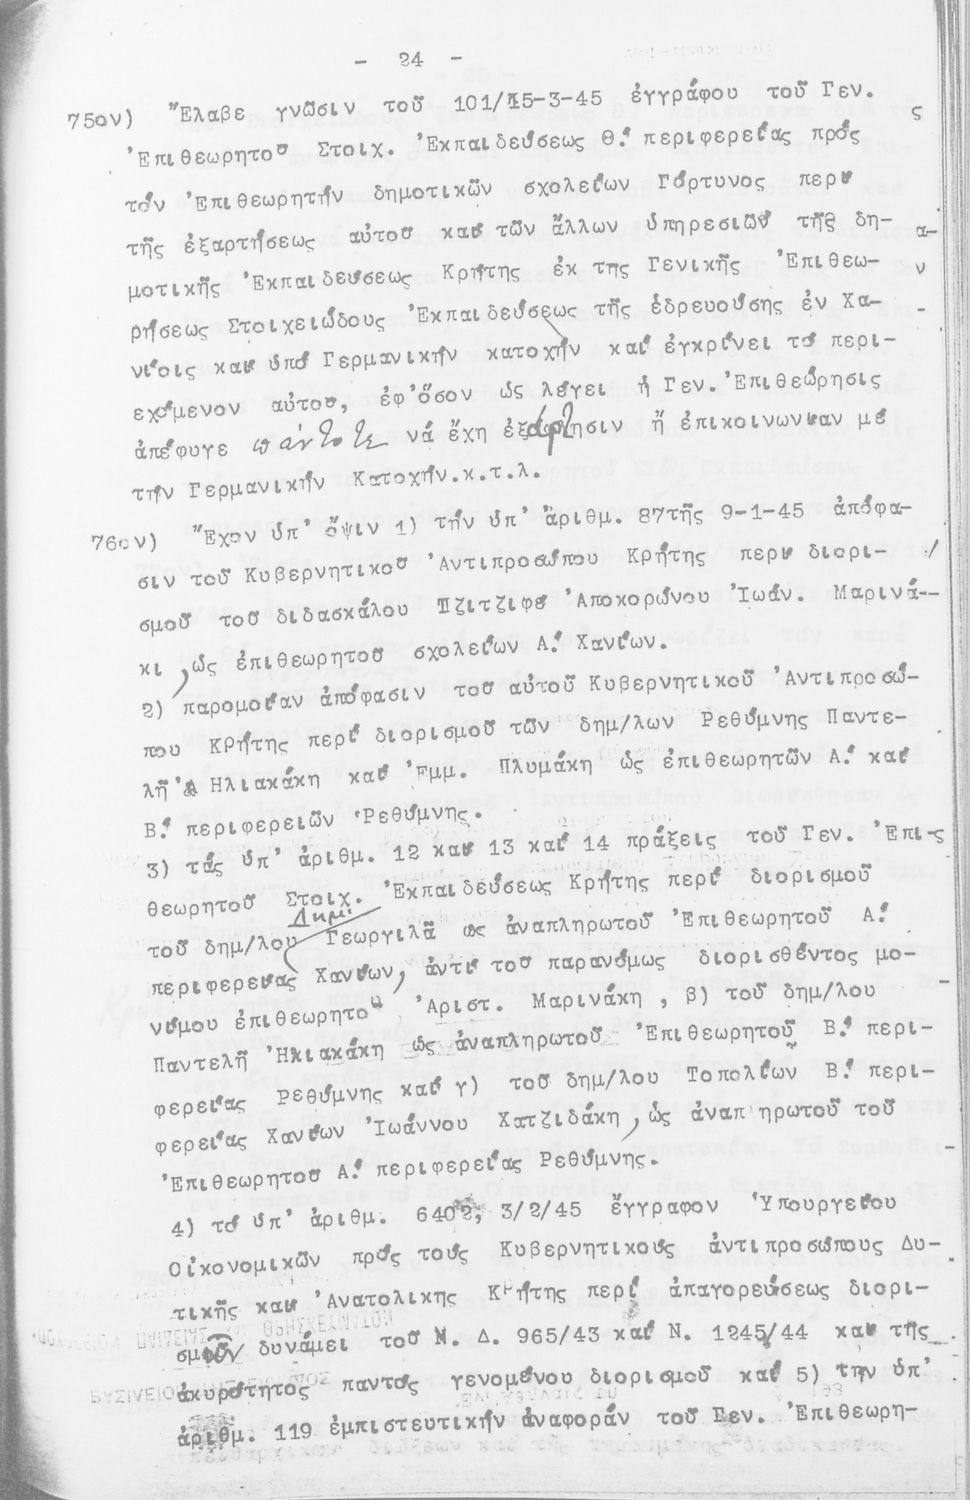 - 24 -
75ον) Ἔλαβε γνῶσιν τοῦ 101/15-3-45 ἐγγράφου τοῦ Γεν.
Ἐπιθεωρητοῦ Στοιχ. Ἐκπαιδεύσεως Θ.' περιφερείας πρός
τόν Ἐπιθεωρητήν δημοτικῶν σχολείων Γόρτυνος περί
τῆς ἐξαρτήσεως αὐτοῦ καί τῶν ἄλλων ὑπηρεσιῶν τῆς δη-
μοτικῆς Ἐκπαιδεύσεως Κρήτης ἐκ της Γενικῆς Ἐπιθεω-
ρήσεως Στοιχειώδους Ἐκπαιδεύσεως τῆς ἑδρευούσης ἐν Χα-
νίοις καί ὑπό Γερμανικήν κατοχήν καί ἐγκρίνει τό περι-
εχόμενον αὐτοῦ, ἐφ'ὅσον ὡς λέγει ἡ Γεν. Ἐπιθεώρησις
ἀπέφυγε πάντοτε νά ἔχη ἐξάρτησιν ἤ ἐπικοινωνίαν μέ
τήν Γερμανικήν Κατοχήν.κ.τ.λ.
76ον) Ἔχον ὑπ' ὄψιν 1) τήν ὑπ' ἀριθμ. 87τῆς 9-1-45 ἀπόφα-
σιν τοῦ Κυβερνητικοῦ Ἀντιπροσώπου Κρήτης περί διορι-
σμοῦ τοῦ διδασκάλου Τζιτζιφέ Ἀποκορώνου Ἰωάν. Μαρινά-
κι, ὡς ἐπιθεωρητοῦ σχολείων Α.' Χανίων.
2) παρομοίαν ἀπόφασιν τοῦ αὐτοῦ Κυβερνητικοῦ Ἀντιπροσώ-
που ΚΡήτης περί διορισμοῦ τῶν δημ/λων Ρεθύμνης Παντε-
λῆ Ηλιακάκη καί Ἐμμ. Πλυμάκη ὡς ἐπιθεωρητῶν Α.' καί
Β.' περιφερειῶν Ρεθύμνης.
3) τάς ὑπ' ἀριθμ. 12 καί 13 καί 14 πράξεις τοῦ Γεν. Ἐπι-
θεωρητοῦ Στοιχ. Ἐκπαιδεύσεως Κρήτης περί διορισμοῦ
Δημ.
τοῦ δημ/λου Γεωργιλᾶ ὡς ἀναπληρωτοῦ Ἐπιθεωρητοῦ Α.'
περιφερείας Χανίων, ἀντί τοῦ παρανόμως διορισθέντος μο-
νίμου ἐπιθεωρητοῦ Ἀριστ. Μαρινάκη, β) τοῦ δημ/λου
Παντελῆ Ἠλιακάκη ὡς ἀναπληρωτοῦ Ἐπιθεωρητοῦ Β.' περι-
φερείας Ρεθύμνης καί γ) τοῦ δημ/λου Τοπολίων Β.' περι-
φερείας Χανίων Ἰωάννου Χατζιδάκη, ὡς ἀναπ ηρωτοῦ τοῦ
Ἐπιθεωρητοῦ Α.' περιφερείας Ρεθύμνης.
4) τό ὑπ' ἀριθμ. 6402, 3/2/45 ἔγγραφον Ὑπουργείου
Οἰκονομικῶν πρός τούς Κυβερνητικούς ἀντιπροσώπους Δυ-
τικῆς καί Ἀνατολικης Κρήτης περί ἀπαγορεύσεως διορι-
σμῶν δυνάμει τοῦ Ν. Δ. 965/43 καί Ν. 1245/44 καί τῆς
ἀκυρότητος παντός γενομένου διορισμοῦ καί 5) τήν ὑπ'
ἀριθμ. 119 ἐμπιστευτικήν ἀναφοράν τοῦ Γεν. Ἐπιθεωρη-